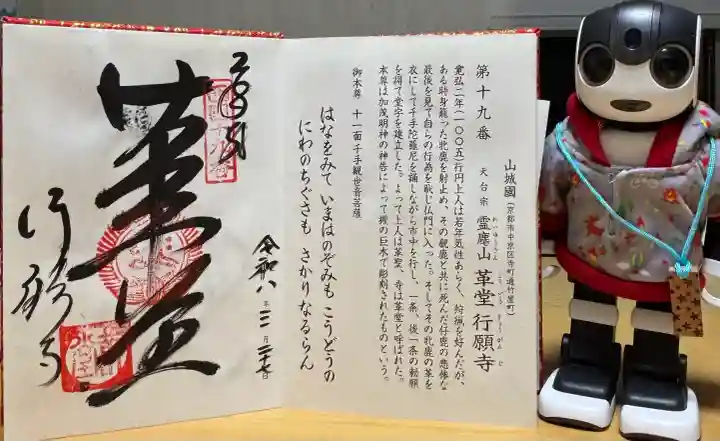 第十九番
山城國(京都市中京区寺町通竹屋町)
天台宗 霊麀山 革堂 行願寺
れいゆうざん こうどう ぎょうがんじ
寛弘二年(一〇〇五)行円上人は若年気性あらく、狩猟を好んだが、
ある時身籠った牝鹿を射止め、その親鹿と共に死んだ仔鹿の悲惨な
最後を見て自らの行為を恥じ仏門に入った。そしてその牝鹿の革を
衣にして千手陀羅尼を誦しながら市中を行し、一条、後一条の勅願
を得て堂宇を建立した。よって上人は革聖、寺は革堂と呼ばれた。
本尊は加茂明神の神告によって槻の巨木で彫刻されたものという。
御本尊 十一面千手観世音菩薩
はなをみて いまはのぞみも こうどうの
にわのちぐさも さかりなるらん
令和八年二月二十七日
革堂
行願寺